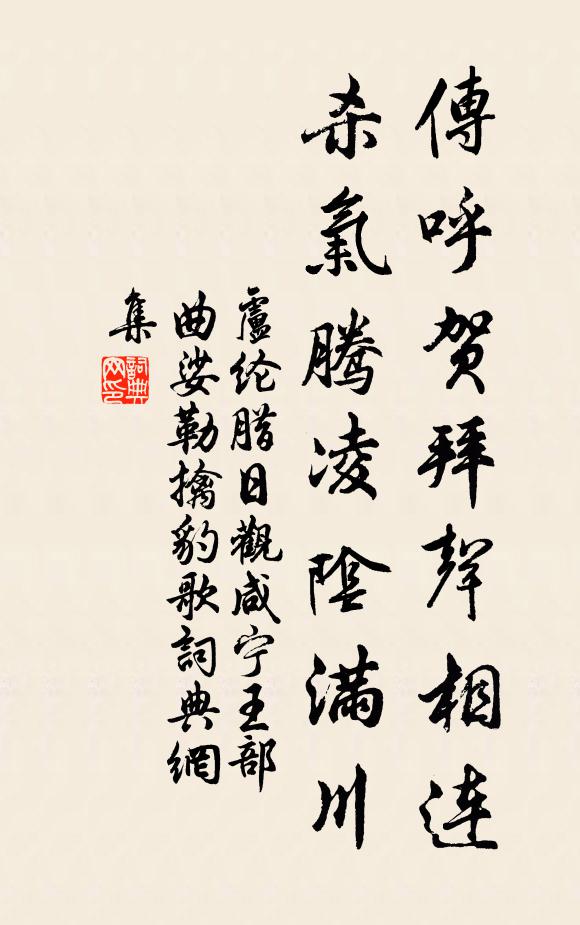 傳呼賀拜聲相連
杀氣騰凌陰滿川
盧纶腊日觀咸宁王部
曲娑勒擒豹歌詞典網
集
詞典
网印